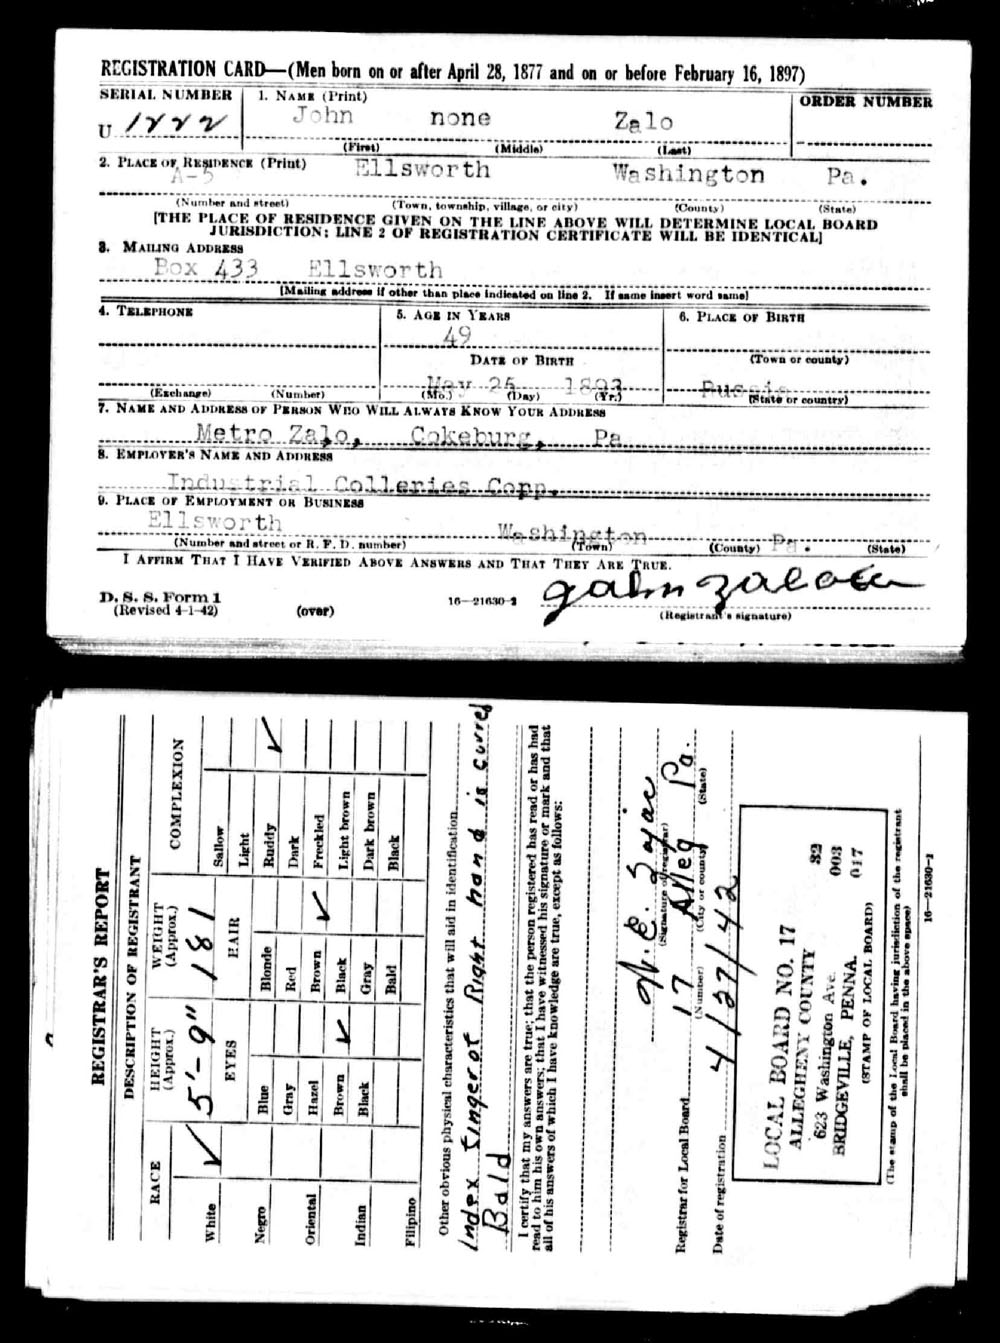 REGISTRATION CARD—(Men born on or after April 28, 1877 and on or before February 16, 1897)
SERIAL NUMBER
1. NAME (Print)
ORDER NUMBER
U 1222
John none Zalo
(First) (Middle) (Last)
2. PLACE OF RESIDENCE (Print)
A-5 Ellsworth Washington Pa.
(Number and street) (Town, township, village, or city) (County) (State)
[THE PLACE OF RESIDENCE GIVEN ON THE LINE ABOVE WILL DETERMINE LOCAL BOARD
JURISDICTION; LINE 2 OF REGISTRATION CERTIFICATE WILL BE IDENTICAL]
3. MAILING ADDRESS
Box 433 Ellsworth
[Mailing address if other than place indicated on line 2. If same insert word same]
4. TELEPHONE
5. AGE IN YEARS
6. PLACE OF BIRTH
49
DATE OF BIRTH
(Town or county)
May 25 1893
Russia
(Exchange) (Number)
(Mo.) (Day) (Yr.)
(State or country)
7. NAME AND ADDRESS OF PERSON WHO WILL ALWAYS KNOW YOUR ADDRESS
Metro Zalo, Cokeburg, Pa
8. EMPLOYER'S NAME AND ADDRESS
Industrial Colleries Copp.
9. PLACE OF EMPLOYMENT OR BUSINESS
Ellsworth Washington Pa.
(Number and street or R. F. D. number) (Town) (County) (State)
I AFFIRM THAT I HAVE VERIFIED ABOVE ANSWERS AND THAT THEY ARE TRUE.
D. S. S. Form 1
(Revised 4-1-42)
(over)
16—21630-2
(Registrant's signature)
REGISTRAR'S REPORT
DESCRIPTION OF REGISTRANT
RACE
HEIGHT
(Approx.)
WEIGHT
(Approx.)
COMPLEXION
5'-9" 181
EYES
HAIR
White
Negro
Oriental
Indian
Filipino
Blue
Gray
Hazel
Brown
Black
Blonde
Red
Brown
Black
Gray
Bald
Sallow
Light
Ruddy
Dark
Freckled
Light brown
Dark brown
Black
Other obvious physical characteristics that will aid in identification.
Index finger of Right hand is curved
Bald
I certify that my answers are true; that the person registered has read or has had
read to him his own answers; that I have witnessed his signature or mark and that
all of his answers of which I have knowledge are true, except as follows:
(Signature of registrar)
Registrar for Local Board 17 Alleg Pa.
(Number) (City or county) (State)
Date of registration 4/27/42
LOCAL BOARD NO. 17 32
ALLEGHENY COUNTY 003
623 Washington Ave. 017
BRIDGEVILLE, PENNA.
(STAMP OF LOCAL BOARD)
(The stamp of the Local Board having jurisdiction of the registrant
shall be placed in the above space)
16—21630-2